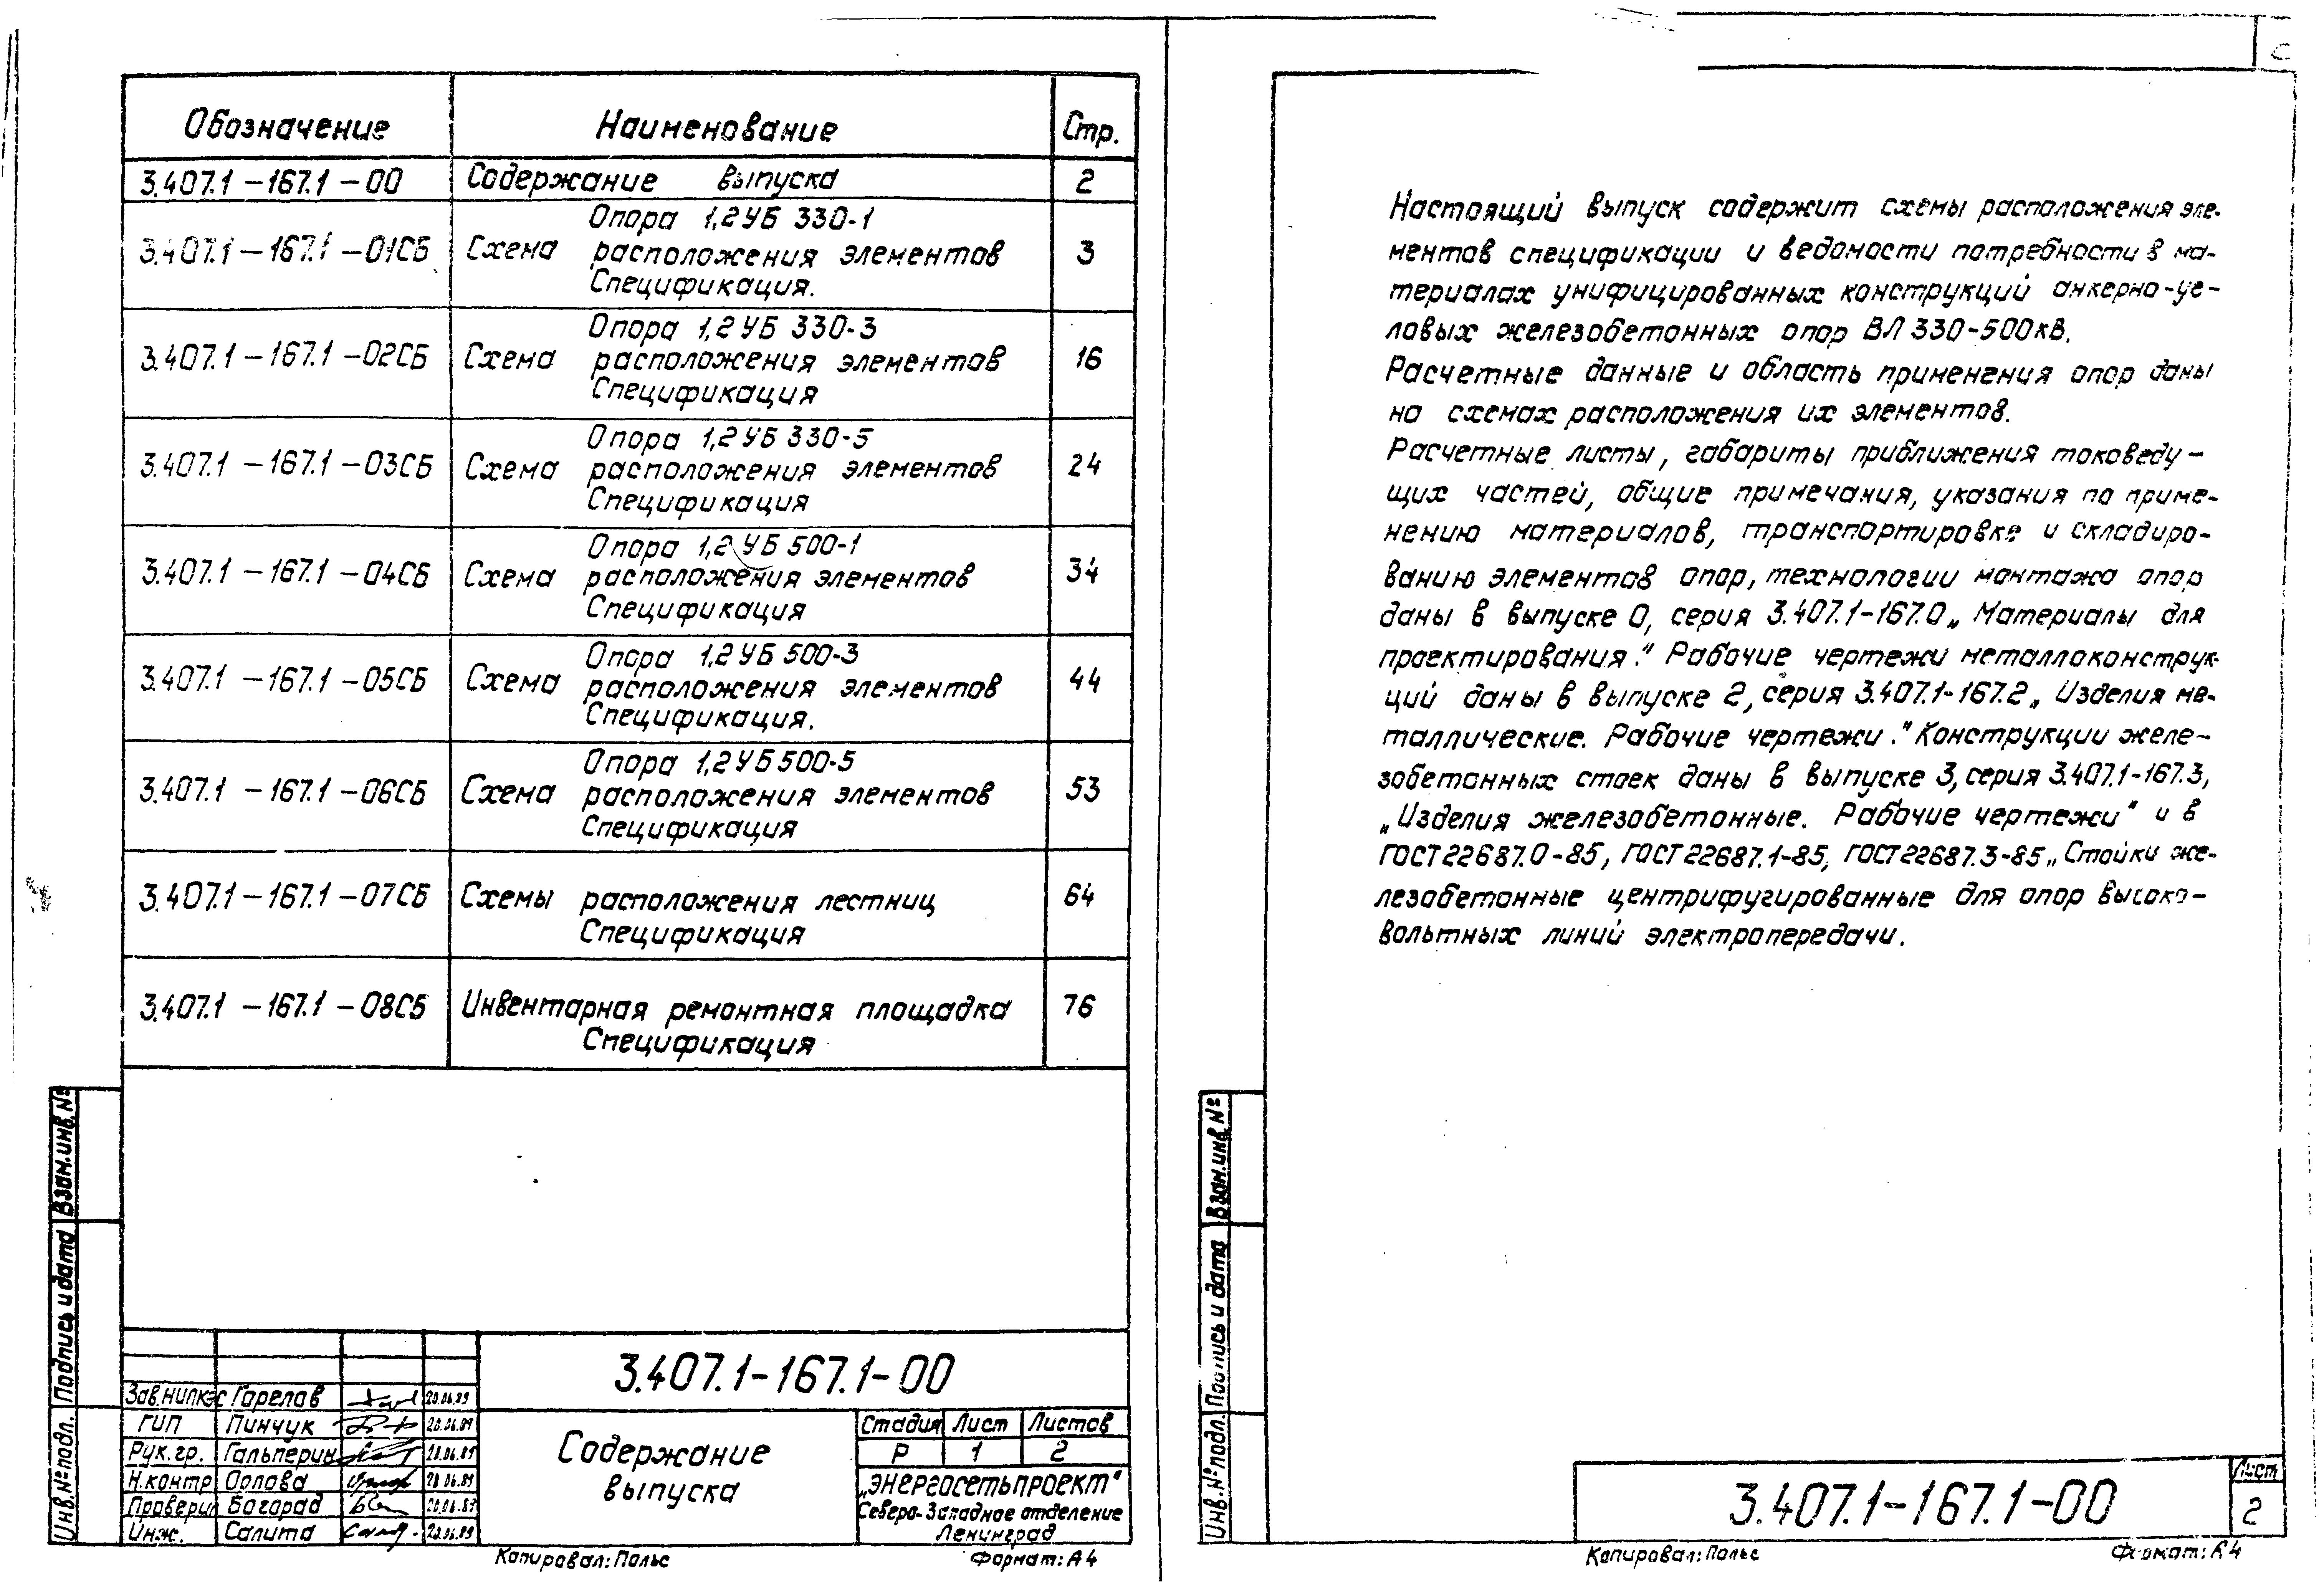 Обозначение Наименование Стр.
3.407.1-167.1-00 Содержание выпуска 2
Опора 1,2УБ 330-1
3.407.1-167.1-01СБ Схема расположения элементов 3
Спецификация.
Опора 1,2УБ 330-3
3.407.1-167.1-02СБ Схема расположения элементов 16
Спецификация
Опора 1,2УБ 330-5
3.407.1-167.1-03СБ Схема расположения элементов 24
Спецификация
Опора 1,2УБ 500-1
3.407.1-167.1-04СБ Схема расположения элементов 34
Спецификация
Опора 1,2УБ 500-3
3.407.1-167.1-05СБ Схема расположения элементов 44
Спецификация.
Опора 1,2УБ 500-5
3.407.1-167.1-06СБ Схема расположения элементов 53
Спецификация
3.407.1-167.1-07СБ Схемы расположения лестниц 64
Спецификация
3.407.1-167.1-08СБ Инвентарная ремонтная площадка 76
Спецификация
Взам.инв.№
Подпись и дата
Инв.№подл.
3.407.1-167.1-00
Зав.НИЛКЭС Горелов 20.06.89
ГИП Пинчук 20.06.89
Рук.гр. Гальперин 20.06.89
Н.контр Орлова 20.06.89
Проверил Богорад 20.06.89
Инж. Салита 20.06.89
Содержание
выпуска
Стадия Лист Листов
Р 1 2
„ЭНЕРГОСЕТЬПРОЕКТ“
Северо-Западное отделение
Ленинград
Копировал: Польс Формат: А4
Настоящий выпуск содержит схемы расположения эле-
ментов спецификации и ведомости потребности в ма-
териалах унифицированных конструкций анкерно-уг-
ловых железобетонных опор ВЛ 330-500кВ.
Расчетные данные и область применения опор даны
на схемах расположения их элементов.
Расчетные листы, габариты приближения токоведу-
щих частей, общие примечания, указания по приме-
нению материалов, транспортировке и складиро-
ванию элементов опор, технологии монтажа опор
даны в выпуске 0, серия 3.407.1-167.0 „Материалы для
проектирования.“ Рабочие чертежи металлоконструк-
ций даны в выпуске 2, серия 3.407.1-167.2 „Изделия ме-
таллические. Рабочие чертежи.“ Конструкции желе-
зобетонных стоек даны в выпуске 3, серия 3.407.1-167.3,
„Изделия железобетонные. Рабочие чертежи“ и в
ГОСТ 22687.0-85, ГОСТ 22687.1-85, ГОСТ 22687.3-85 „Стойки же-
лезобетонные центрифугированные для опор высоко-
вольтных линий электропередачи.
Взам.инв.№
Подпись и дата
Инв.№подл.
3.407.1-167.1-00
Лист
2
Копировал: Польс Формат: А4